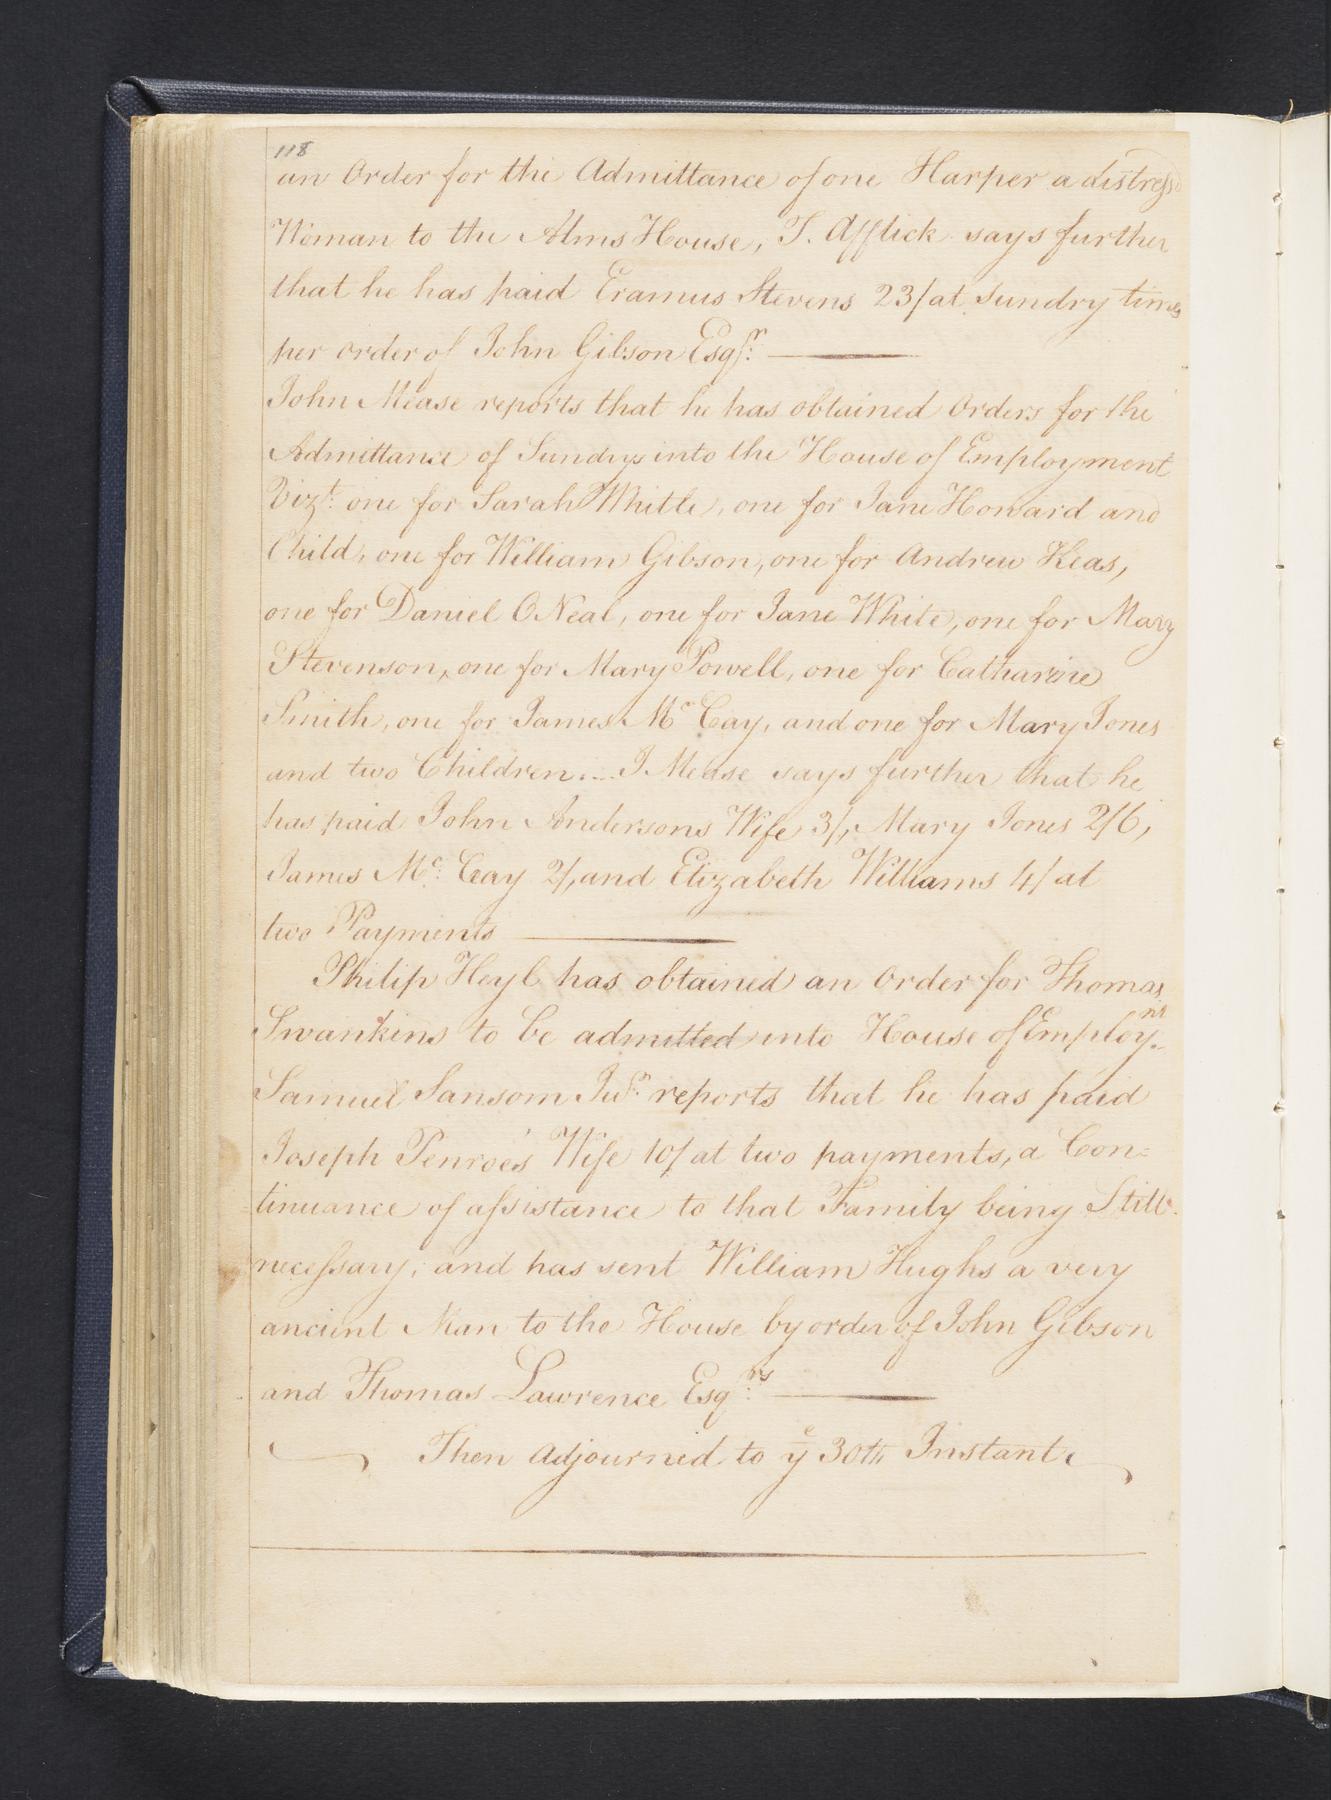 118
an Order for the Admittance of one Harper a distress'd
Woman to the Alms House, T. Afflick says further
that he has paid Eramus Stevens 23/ at Sundry times
per order of John Gibson Esqr.
John Mease reports that he has obtained Orders for the
Admittance of Sundrys into the House of Employment
Vizt. one for Sarah Whitle, one for Jane Howard and
Child, one for William Gibson, one for Andrew Keas,
one for Daniel ONeal, one for Jane White, one for Mary
Stevenson, one for Mary Powell, one for Catharine
Smith, one for James Mc Cay, and one for Mary Jones
and two Children.... J Mease says further that he
has paid John Andersons Wife 3/, Mary Jones 2/6,
James Mc: Cay 2/, and Elizabeth Williams 4/ at
two Payments
Philip Heyl has obtained an Order for Thomas
Swankins to be admitted into House of Employ.nt
Samuel Sansom Junr. reports that he has paid
Joseph Penroe's Wife 10/ at two payments, a Con=
tinuance of assistance to that Family being Still
necessary; and has sent William Hughs a very
ancient Man to the House by order of John Gibson
and Thomas Lawrence Esq.rs
Then Adjourned to ye 30th Instant